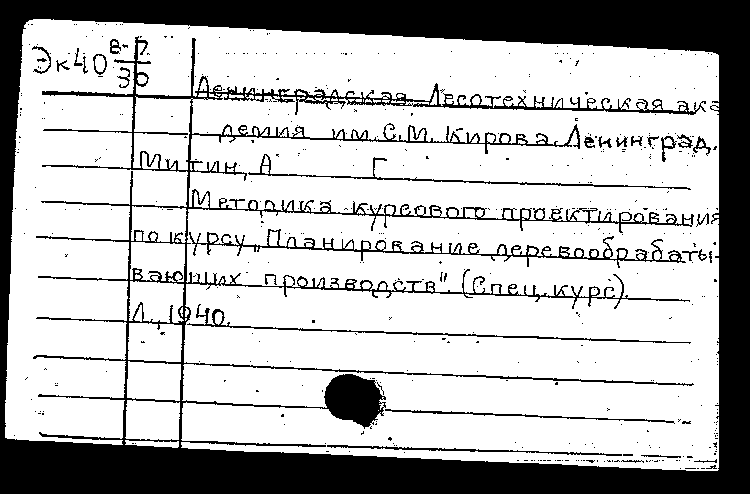 Эк40 В-7
30
Ленинградская Лесотехническая ака
демия им. С.М. Кирова. Ленинград.
Митин, А Г
Методика курсового проектирования
по курсу „Планирование деревообрабаты-
вающих производств". (Спец. курс).
Л., 1940.